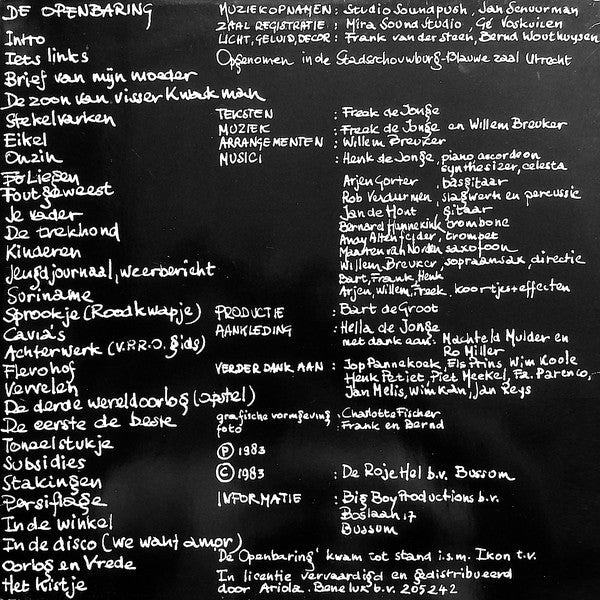 DE OPENBARING
Intro
Iets links
Brief van mijn moeder
De zoon van visser Kwakman
Stekelvarken
Eikel
Onzin
Fo Liegen
Fout geweest
Je vader
De trekhond
Kinderen
Jeugdjournaal, weerbericht
Suriname
Sprookje (Roodkwapje)
Cavia's
Achterwerk (V.P.R.O. gids)
Flevohof
Vervelen
De derde wereldoorlog (opstel)
De eerste de beste
Toneelstukje
Subsidies
Stakingen
Persiflage
In de winkel
In de disco (we want amor)
Oorlog en Vrede
Het kistje
MUZIEKOPNAMEN: Studio Soundpush, Jan Schuurman
ZAAL REGISTRATIE: Mira Sound Studio, Gé Voskuilen
LICHT, GELUID, DECOR: Frank van der steen, Bernd Wouthuysen
Opgenomen in de Stadsschouwburg-Blauwe zaal Utrecht
TEKSTEN : Freek de Jonge
MUZIEK : Freek de Jonge en Willem Breuker
ARRANGEMENTEN : Willem Breuker
MUSICI : Henk de Jonge, piano, accordeon
synthesizer, celesta
Arjen Gorter, basgitaar
Rob Verdurmen, slagwerk en percussie
Jan de Hont, gitaar
Bernard Hunnekink, trombone
Andy Altenfelder, trompet
Maarten van Norden saxofoon
Willem Breuker, sopraansax, directie
Bart, Frank, Henk
Arjen, Willem, Freek, koortjes + effecten
PRODUCTIE : Bart de Groot
AANKLEDING : Hella de Jonge
met dank aan: Machteld Mulder en
Ro Miller
VERDER DANK AAN : Jop Pannekoek, Els Prins, Wim Koole
Henk Petiet, Piet Meekel, Fa. Parenco,
Jan Melis, Wim Kan, Jan Reys
grafische vormgeving : Charlotte Fischer
foto : Frank en Bernd
Ⓟ 1983
© 1983 : De Roje Hel b.v. Bussum
INFORMATIE : Big Boy Productions b.v.
Boslaan 17
Bussum
'De Openbaring' kwam tot stand i.s.m. Ikon t.v.
In licentie vervaardigd en gedistribueerd
door Ariola Benelux b.v. 205 242